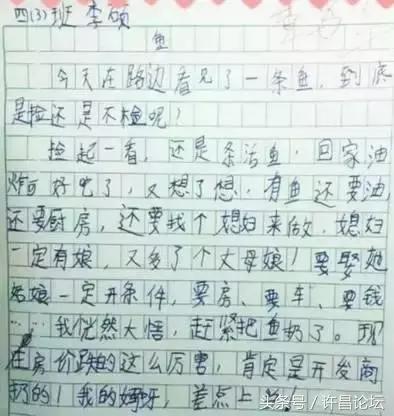 四(3)班 李硕
鱼
今天在路边看见了一条鱼,到底
是捡还是不检呢!
捡起一看,还是条活鱼,回家油
炸可好吃了,又想了想,有鱼还要油,
还要厨房,还要找个媳妇来做,媳妇
一定有娘,又多了个丈母娘!要娶她
姑娘一定开条件,要房、要车、要钱
……我恍然大悟,赶紧把鱼扔了。现
在房价跌的这么厉害,肯定是开发商
扔的!我的妈呀,差点上
头条号 / 许昌论坛